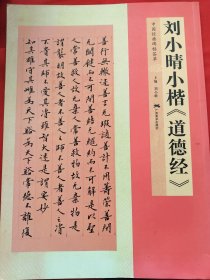 刘小晴小楷《道德经》
善行無轍迹善言無瑕讁善計不用籌策善閉
無關鍵而不可開善結無繩約而不可解是以聖
人常善救人故無棄人常善救物故無棄物是
謂襲明故善人者不善人之師不善人者善人之資
不貴其師不愛其資雖智大迷是謂要妙
知其雄守其雌為天下谿為天下谿常德不離復